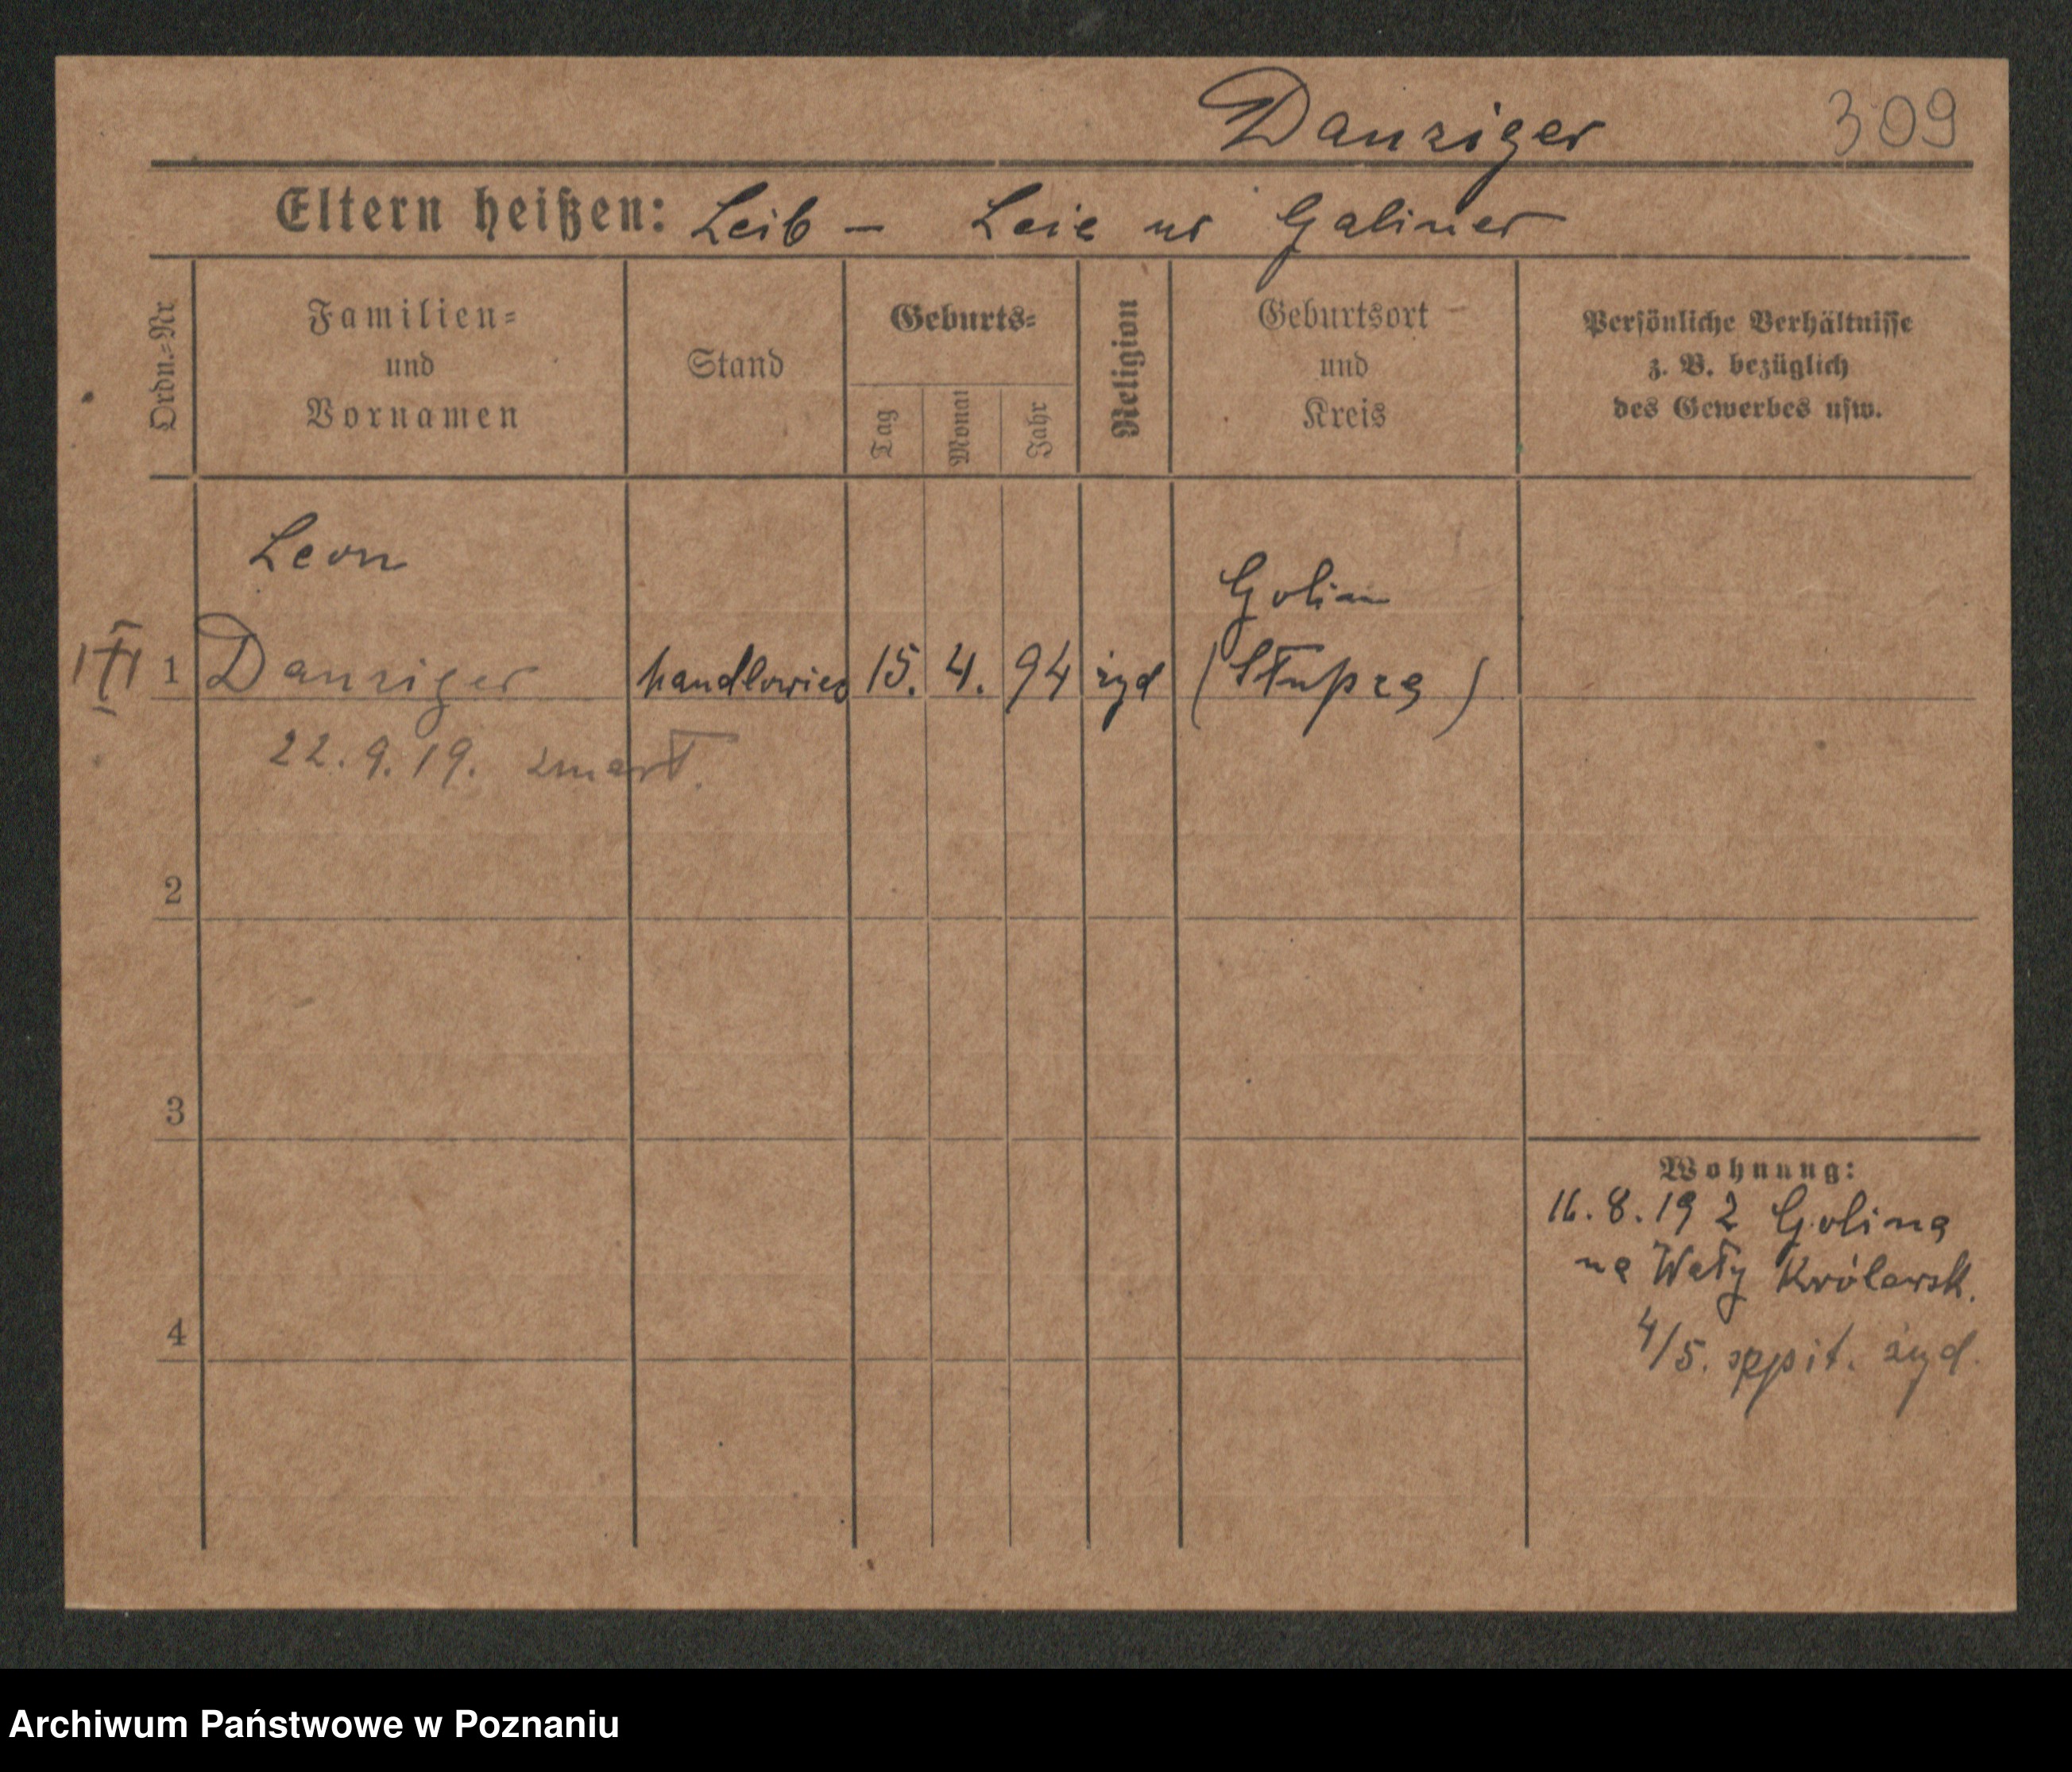 Danziger 309
Eltern heißen: Leib – Leie ur Galiner
Ordn.=Nr
Familien=
und
Vornamen
Stand
Geburts=
Tag
Monat
Jahr
Religion
Geburtsort
und
Kreis
Persönliche Verhältnisse
z. B. bezüglich
des Gewerbes usw.
Leon
Golian
1 Danziger handlowiec 15. 4. 94 żyd (Słupca)
22.9.19. zmarł.
2
3
Wohnung:
16.8.19 z Golina
na Wały Królewsk.
4
4/5. szpit. żyd.
Archiwum Państwowe w Poznaniu